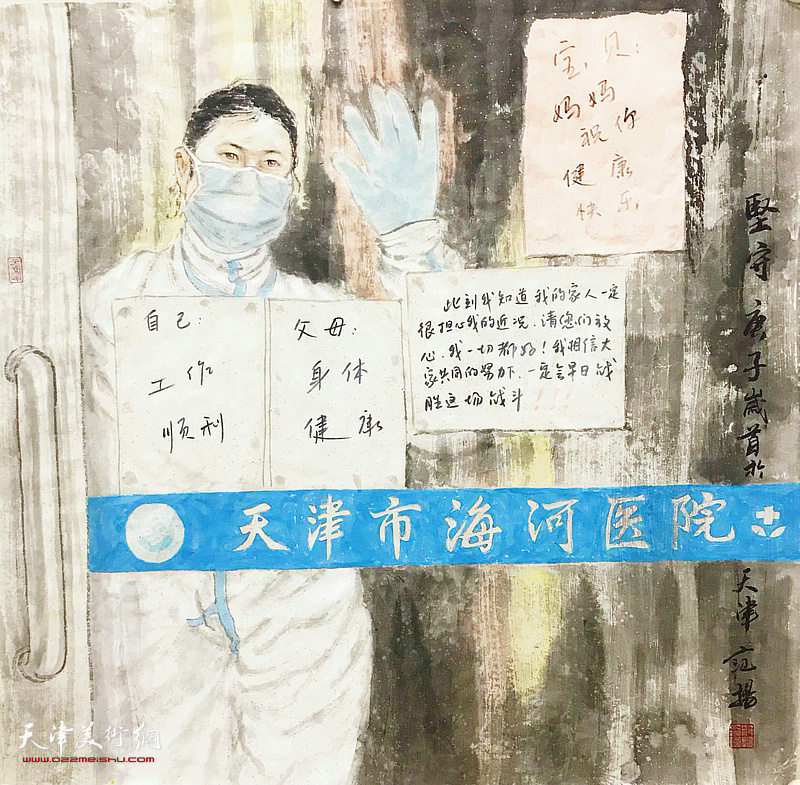 宝贝：
妈妈
祝你
健康
快乐
自己：
工作
顺利
父母：
身体
健康
此刻我知道我的家人一定
很担心我的近况，请您们放
心，我一切都好！我相信大
家共同的努力下，一定会早日战
胜这场战斗！！！
天津市海河医院
坚守 庚子岁首於
天津
天津美術網
www.022meishu.com